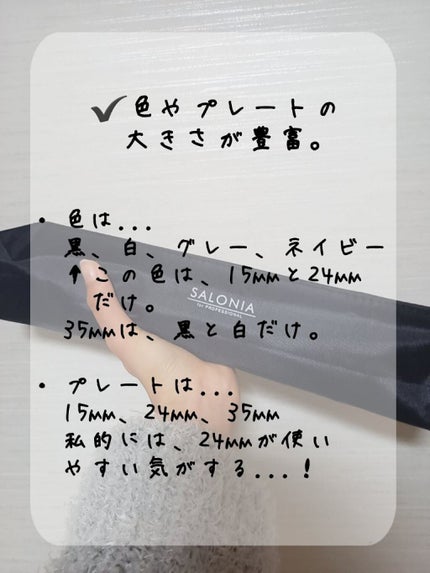 ✔色やプレートの
大きさが豊富。
・色は...
黒、白、グレー、ネイビー
↑この色は、15mmと24mm
だけ。
SALONIA
for PROFESSIONAL
35mmは、黒と白だけ。
・プレートは...
15mm、24mm、35mm
私的には、24mmが使い
やすい気がする...!